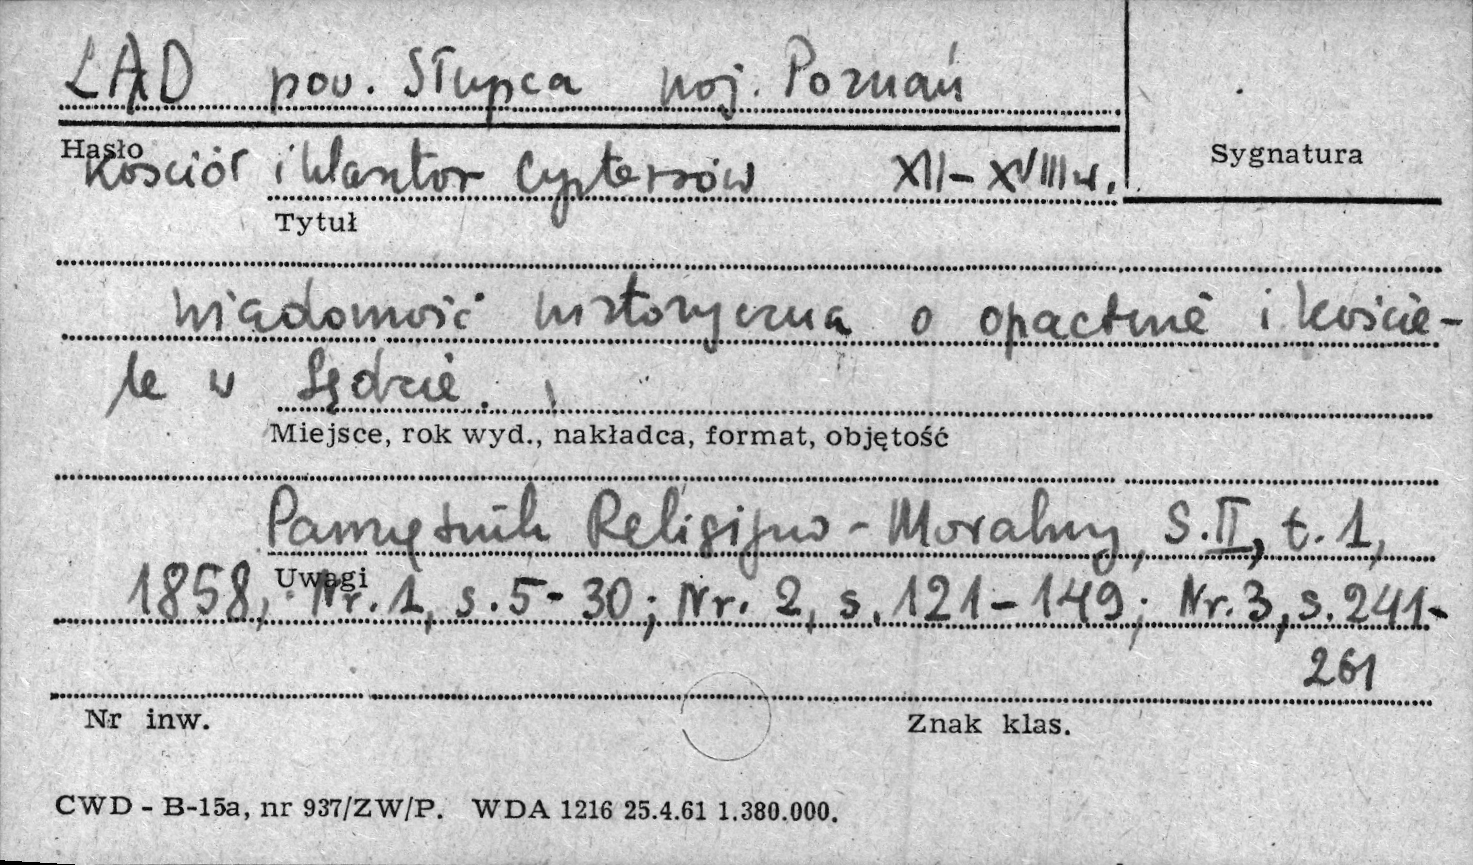 LĄD pow. Słupca woj. Poznań
Hasło
Sygnatura
Kościół i klasztor Cystersów XII-XVIII w.
Tytuł
Wiadomość historyczna o opactwie i koście-
le w Lądzie.
Miejsce, rok wyd., nakładca, format, objętość
Pamiętnik Religijno-Moralny, S.II, t.1,
Uwagi
1858, Nr.1, s.5-30; Nr.2, s.121-149; Nr.3, s.241-
261
Nr inw.
Znak klas.
CWD - B-15a, nr 937/ZW/P. WDA 1216 25.4.61 1.380.000.